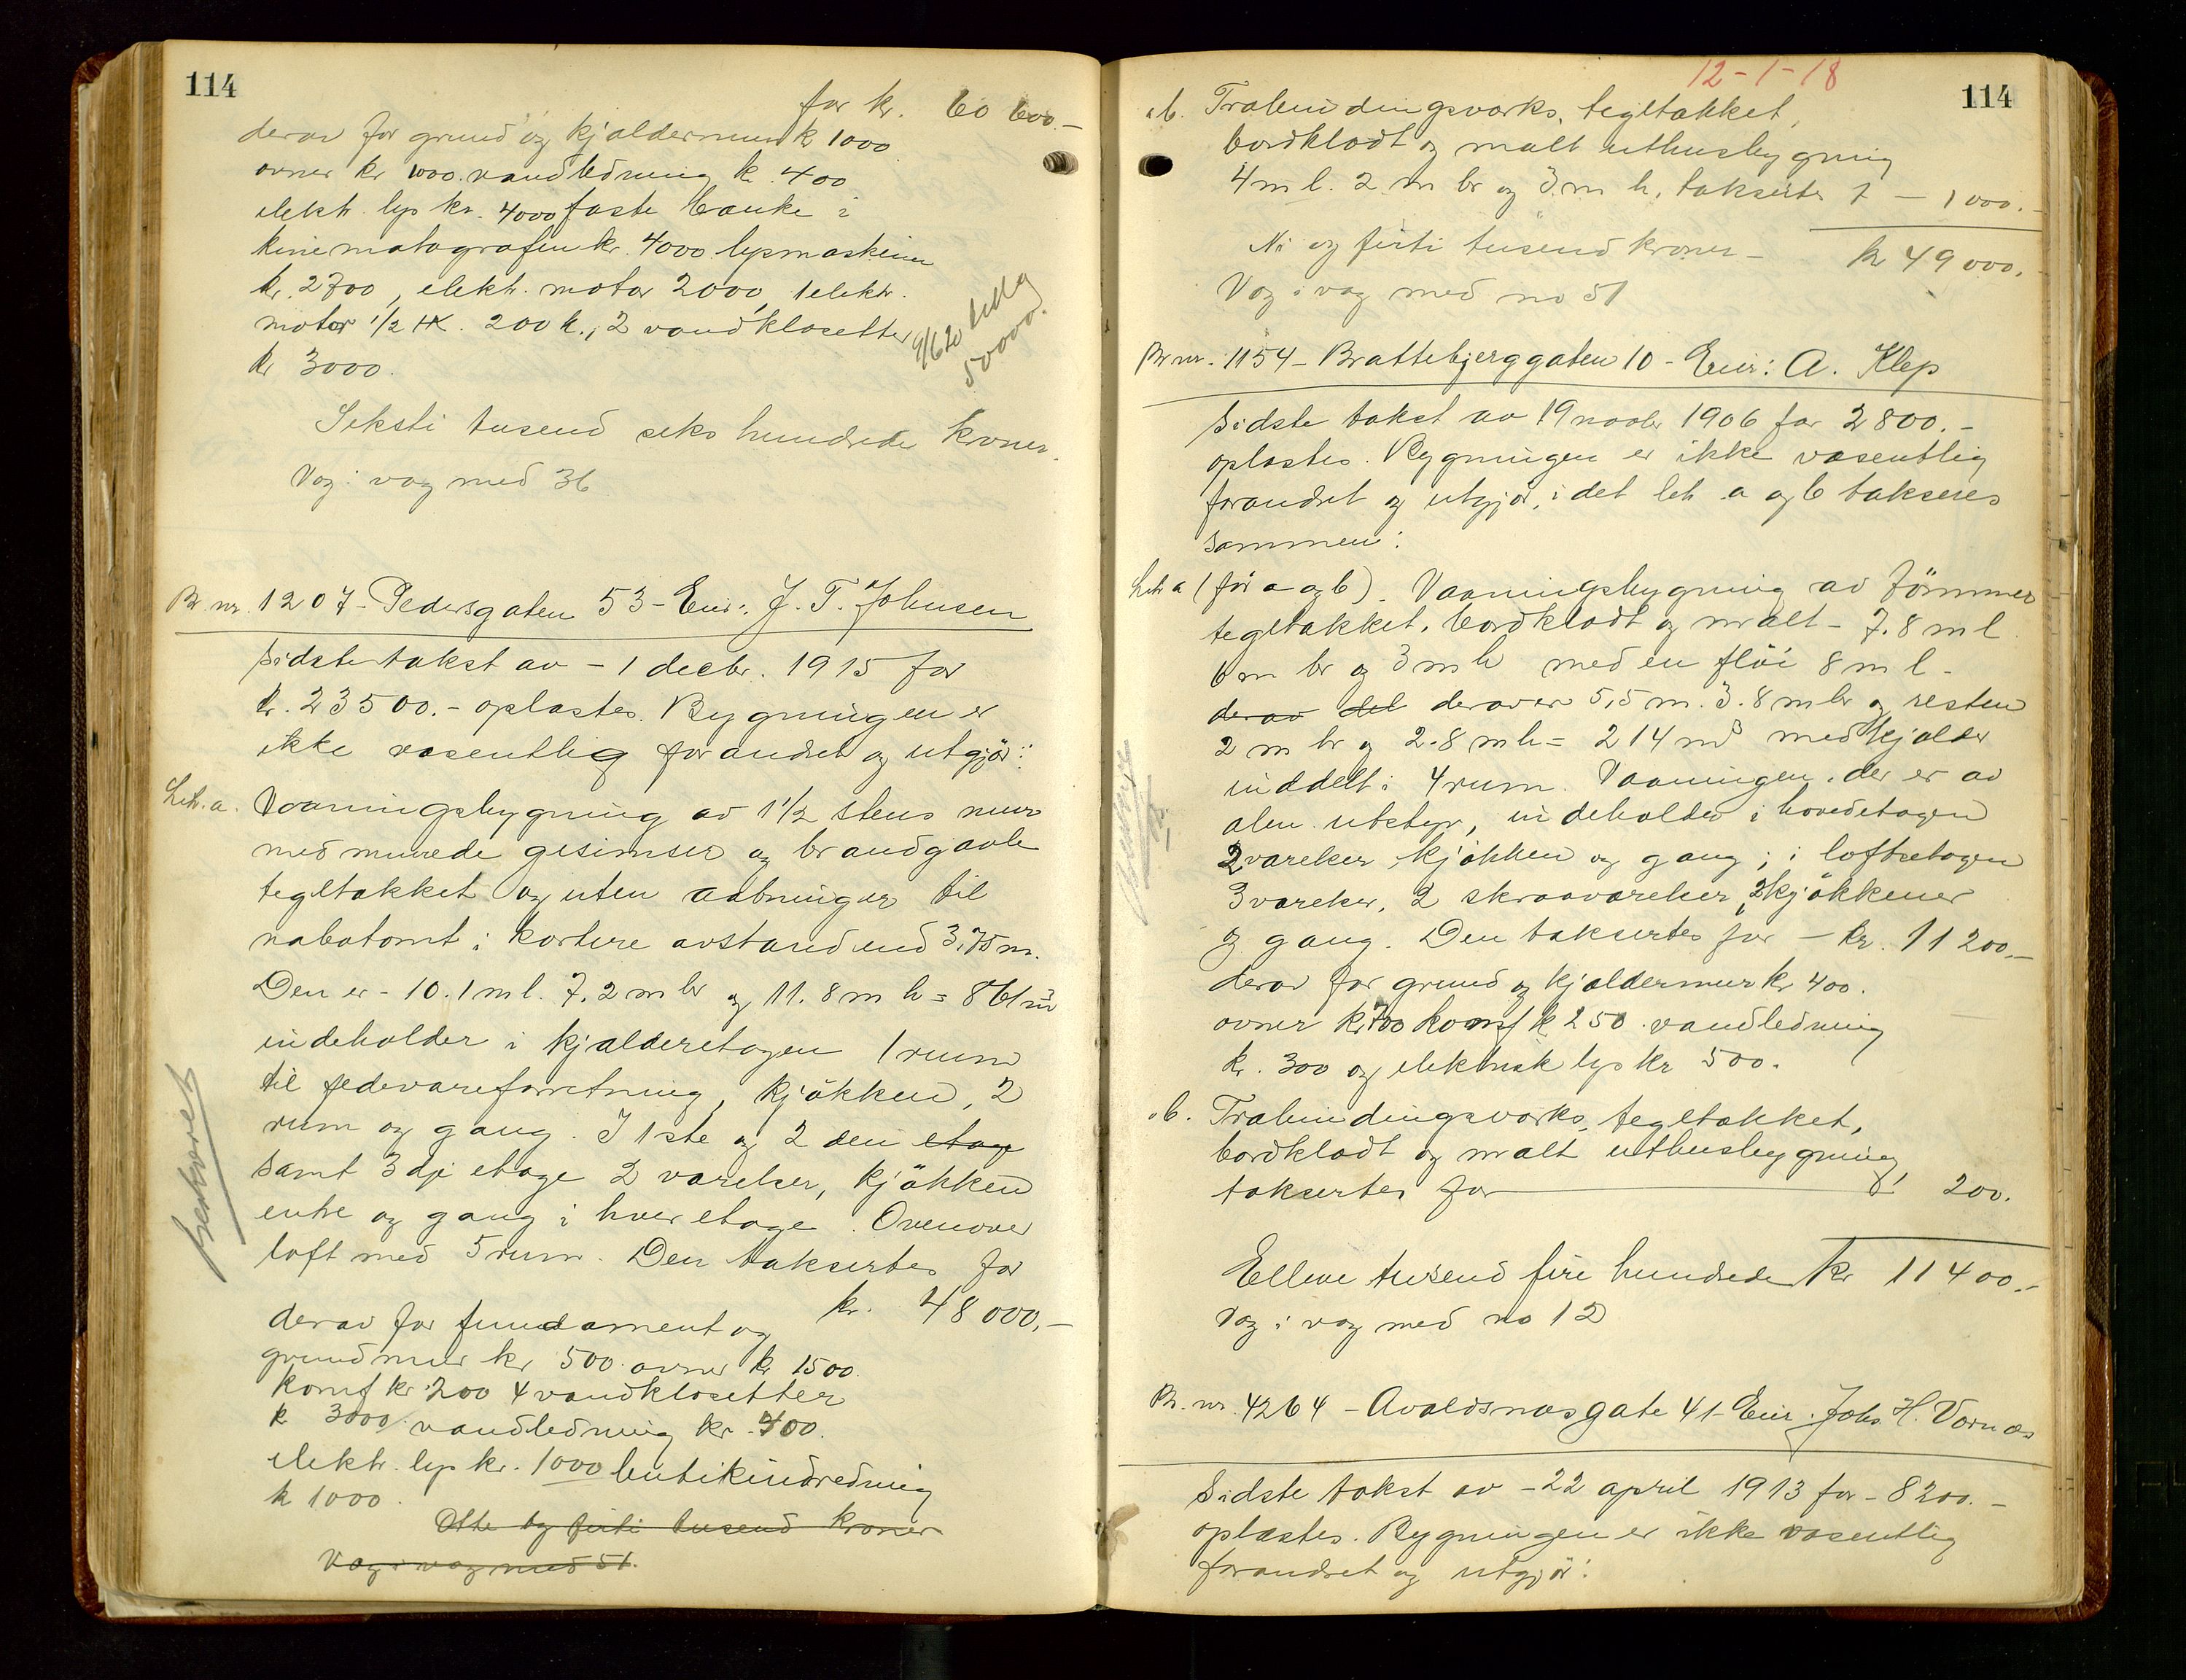 114
for kr. 60 600.-
derav for grund og kjældermur k 1000
ovner kr 1000. vandledning k. 400
elektr. lys kr. 4000 faste bænke i
kinematografen kr. 4000 lysmaskiner
kr. 2700, elektr. motor 2000, 1 elektr.
motor 1/2 HK. 200 k., 2 vandklosetter
kr 3000.
9/6 20
50000.
Seksti tusend seks hundrede kroner.
Vog: vog med 36
Br. nr. 1207 - Pedersgaten 53 - Eier: J. T. Johnsen
Sidste takst av - 1 decbr. 1915 for
kr. 23500.- oplæstes. Bygningen er
ikke væsentlig forandret og utgjør:
Litr. a. Vaaningsbygning av 1 1/2 stens mur
med murede gesimser og brandgavle
tegltækket og uten aabninger til
nabotomt i kortere avstand end 3,75 m.
Den er - 10.1 m l. 7.2 m br og 11.8 m h = 861 m3
indeholder i kjælderetagen 1 rum
til fedevareforretning, kjøkken, 2
rum og gang. I 1ste og 2den etage
samt 3dje etage 2 værelser, kjøkken
entre og gang i hver etage. Ovenover
loft med 5 rum. Den taksertes for
kr. 48 000.-
derav for fundament og
grundmur kr 500. ovner kr 1500.
komf kr. 200 4 vandklosetter
k 3000. vandledning kr. 400.
elektr. lys kr. 1000 butikindredning
k 1000.
Otte og firti tusend kroner
Vog i vog med 51.
12-1-18
114
" b. Træbindingsværks, tegltækket,
bordklædt og malt uthusbygning
4 m l. 2 m br og 3 m h, taksertes f - 1 000.-
Ni og firti tusend kroner - kr 49 000.-
Vog i vog med no 51
Br. nr. 1154 - Brattebjerggaten 10 - Eier: A. Klep
Sidste takst av 19 novbr 1906 for 2800.-
oplæstes. Bygningen er ikke væsentlig
forandret og utgjør, i det litr a og b takseres
sammen:
Litr a (før a og b). Vaaningsbygning av tømmer
tegltækket, bordklædt og malt - 7.8 m l.
6 m br og 3 m h med en fløi 8 m l -
derav del derav er 5,5 m. 3.8 m br og resten
2 m br og 2.8 m h = 214 m3 med kjælder
inddelt i 4 rum. Vaaningen, der er av
alm. utstyr, indeholder i hovedetagen
2 værelser kjøkken og gang; i loftsetagen
3 værelser, 2 skraaværelser, 2 kjøkkener
og gang. Den taksertes for - kr. 11 200.-
derav for grund og kjældermur kr 400.
ovner kr 700 komf k 250. vandledning
kr. 300 og elektrisk lys kr 500.
" b. Træbindingsværks, tegltækket,
bordklædt og malt uthusbygning,
taksertes for f! 200.
Elleve tusend fire hundrede kr 11 400.-
Vog i vog med no 12
Br. nr. 4264 - Avaldsnæsgate 41 - Eier: Johs H. Vornæs
Sidste takst av - 22 april 1913 for - 8200.-
oplæstes. Bygningen er ikke væsentlig
forandret og utgjør: